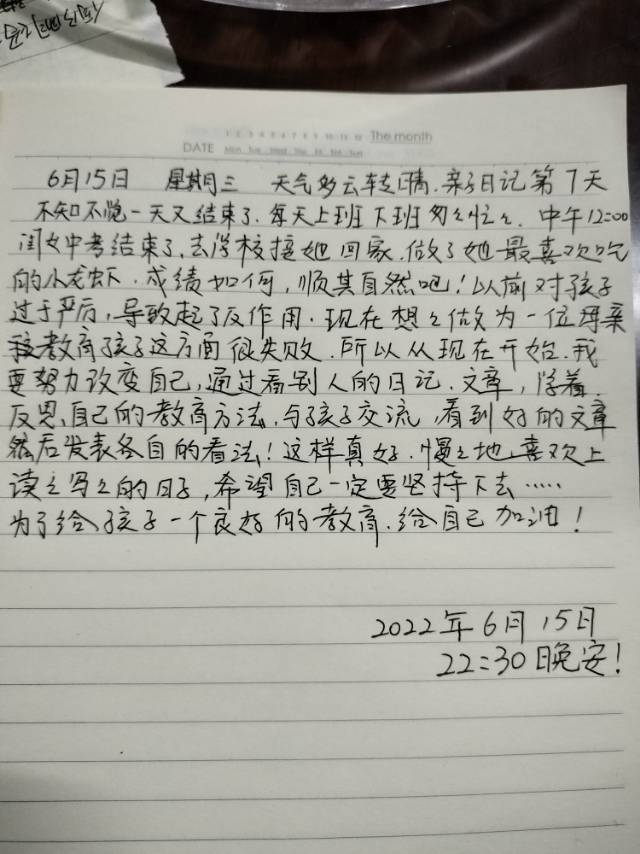 1 2 3 4 5 6 7 8 9 10 11 12 The month
DATE Mon Tue Wed Thu Fri Sat Sun
6月15日 星期三 天气多云转晴.亲子日记第7天
不知不觉一天又结束了.每天上班下班匆々忙々.中午12:00
闺女中考结束了,去学校接她回家.做了她最喜欢吃
的小龙虾.成绩如何,顺其自然吧!以前对孩子
过于严厉,导致起了反作用.现在想々做为一位母亲
教育孩子这方面很失败.所以从现在开始.我
要努力改变自己,通过看别人的日记.文章,学着
反思自己的教育方法,与孩子交流,看到好的文章
然后发表各自的看法!这样真好.慢々地喜欢上
读々写々的日子,希望自己一定要坚持下去……
为了给孩子一个良好的教育.给自己加油!
2022年6月15日
22:30晚安!